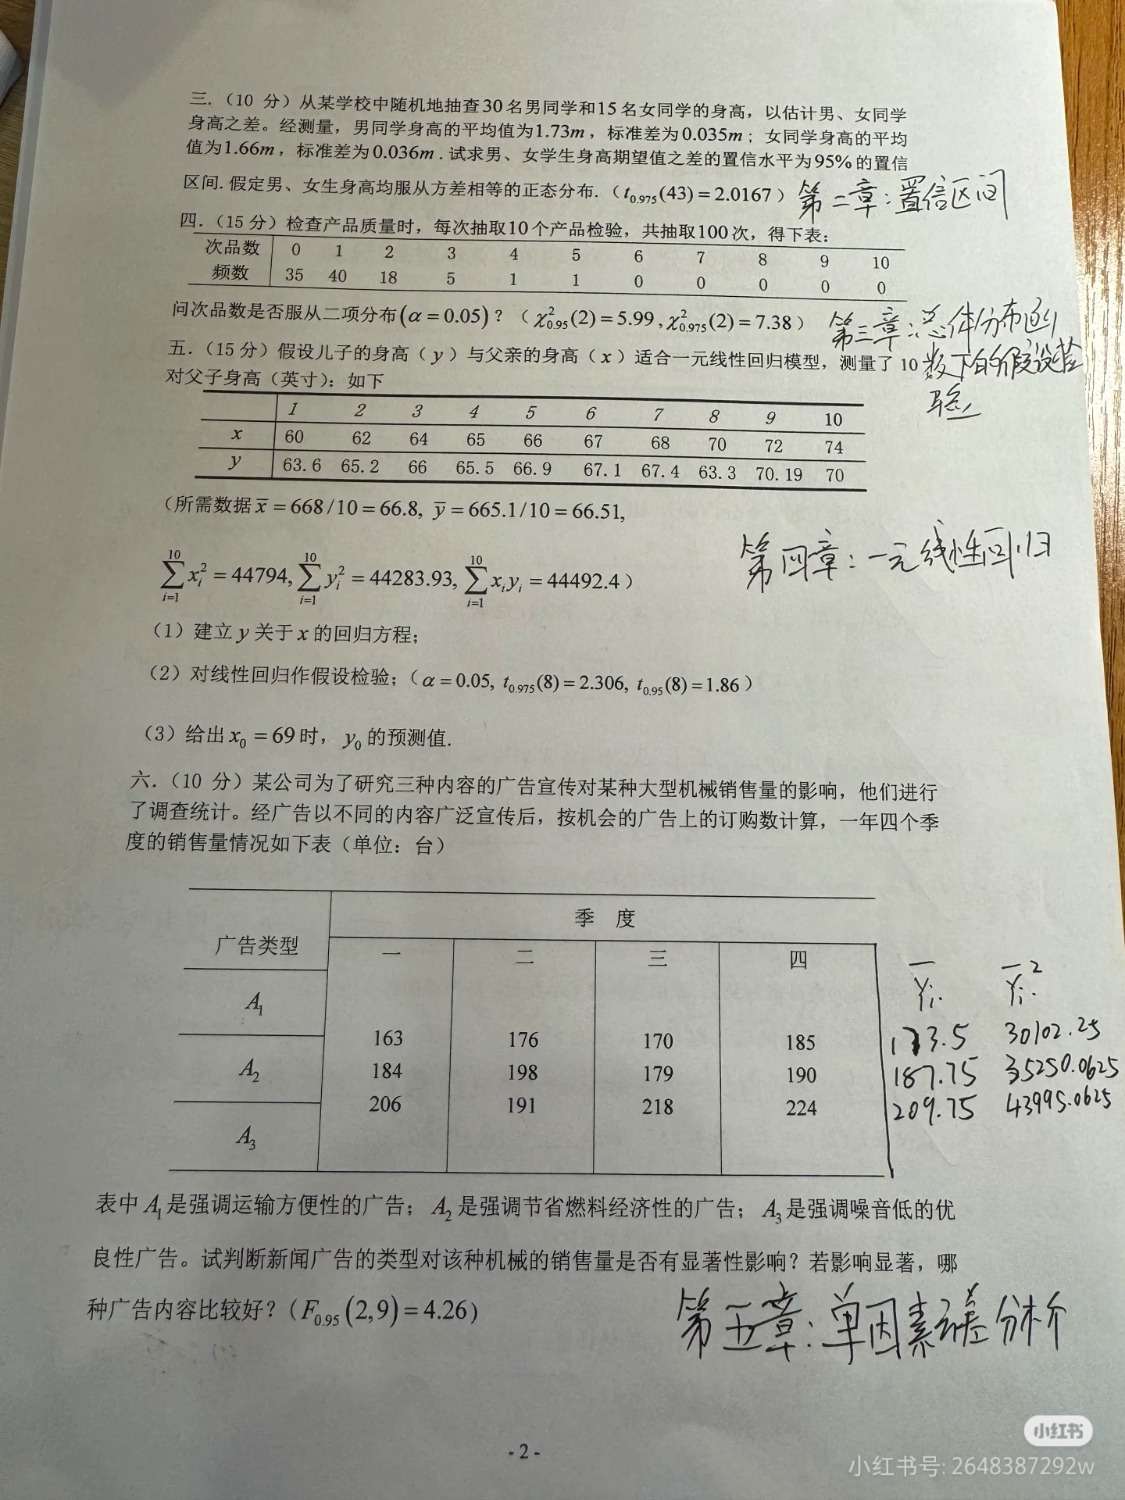 三.（10 分）从某学校中随机地抽查30名男同学和15名女同学的身高，以估计男、女同学
身高之差。经测量，男同学身高的平均值为1.73m，标准差为0.035m；女同学身高的平均
值为1.66m，标准差为0.036m．试求男、女学生身高期望值之差的置信水平为95%的置信
区间．假定男、女生身高均服从方差相等的正态分布．（t₀.₉₇₅(43)=2.0167）
第二章：置信区间
四.（15 分）检查产品质量时，每次抽取10个产品检验，共抽取100次，得下表：
次品数 0 1 2 3 4 5 6 7 8 9 10
频数 35 40 18 5 1 1 0 0 0 0 0
问次品数是否服从二项分布(α=0.05)？（χ²₀.₉₅(2)=5.99,χ²₀.₉₇₅(2)=7.38）
第三章：总体分布函
数下的假设检
验
五.（15 分）假设儿子的身高（y）与父亲的身高（x）适合一元线性回归模型，测量了 10
对父子身高（英寸）：如下
1 2 3 4 5 6 7 8 9 10
x 60 62 64 65 66 67 68 70 72 74
y 63.6 65.2 66 65.5 66.9 67.1 67.4 63.3 70.19 70
（所需数据x̄=668/10=66.8, ȳ=665.1/10=66.51,
∑xᵢ²=44794, ∑yᵢ²=44283.93, ∑xᵢyᵢ=44492.4）
第四章：一元线性回归
（1）建立y关于x的回归方程；
（2）对线性回归作假设检验；（α=0.05, t₀.₉₇₅(8)=2.306, t₀.₉₅(8)=1.86）
（3）给出x₀=69时，y₀的预测值.
六.（10 分）某公司为了研究三种内容的广告宣传对某种大型机械销售量的影响，他们进行
了调查统计。经广告以不同的内容广泛宣传后，按机会的广告上的订购数计算，一年四个季
度的销售量情况如下表（单位：台）
广告类型 季 度
一 二 三 四
A₁ 163 176 170 185
A₂ 184 198 179 190
A₃ 206 191 218 224
Ȳᵢ. Ȳᵢ.²
173.5 30102.25
187.75 35250.0625
209.75 43995.0625
表中A₁是强调运输方便性的广告；A₂是强调节省燃料经济性的广告；A₃是强调噪音低的优
良性广告。试判断新闻广告的类型对该种机械的销售量是否有显著性影响？若影响显著，哪
种广告内容比较好？（F₀.₉₅(2,9)=4.26）
第五章：单因素方差分析
-2-
小红书
小红书号: 2648387292w